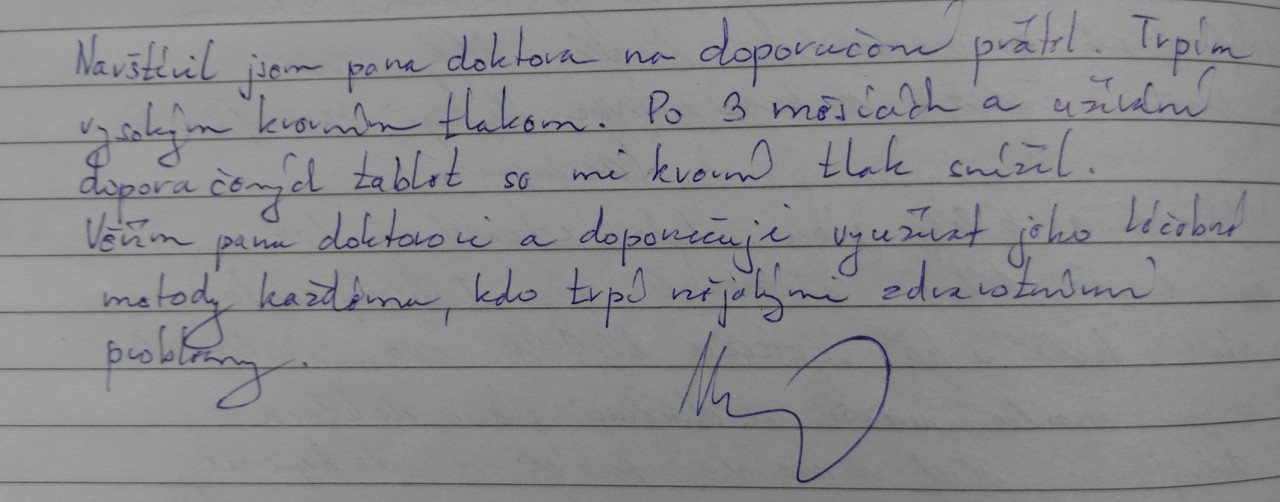 Navštívil jsem pana doktora na doporučení přátel. Trpím
vysokým krevním tlakem. Po 3 měsících a užívání
doporučených tablet se mi krevní tlak snížil.
Věřím panu doktorovi a doporučuji využívat jeho léčebné
metody každému, kdo trpí nějakými zdravotními
problémy.